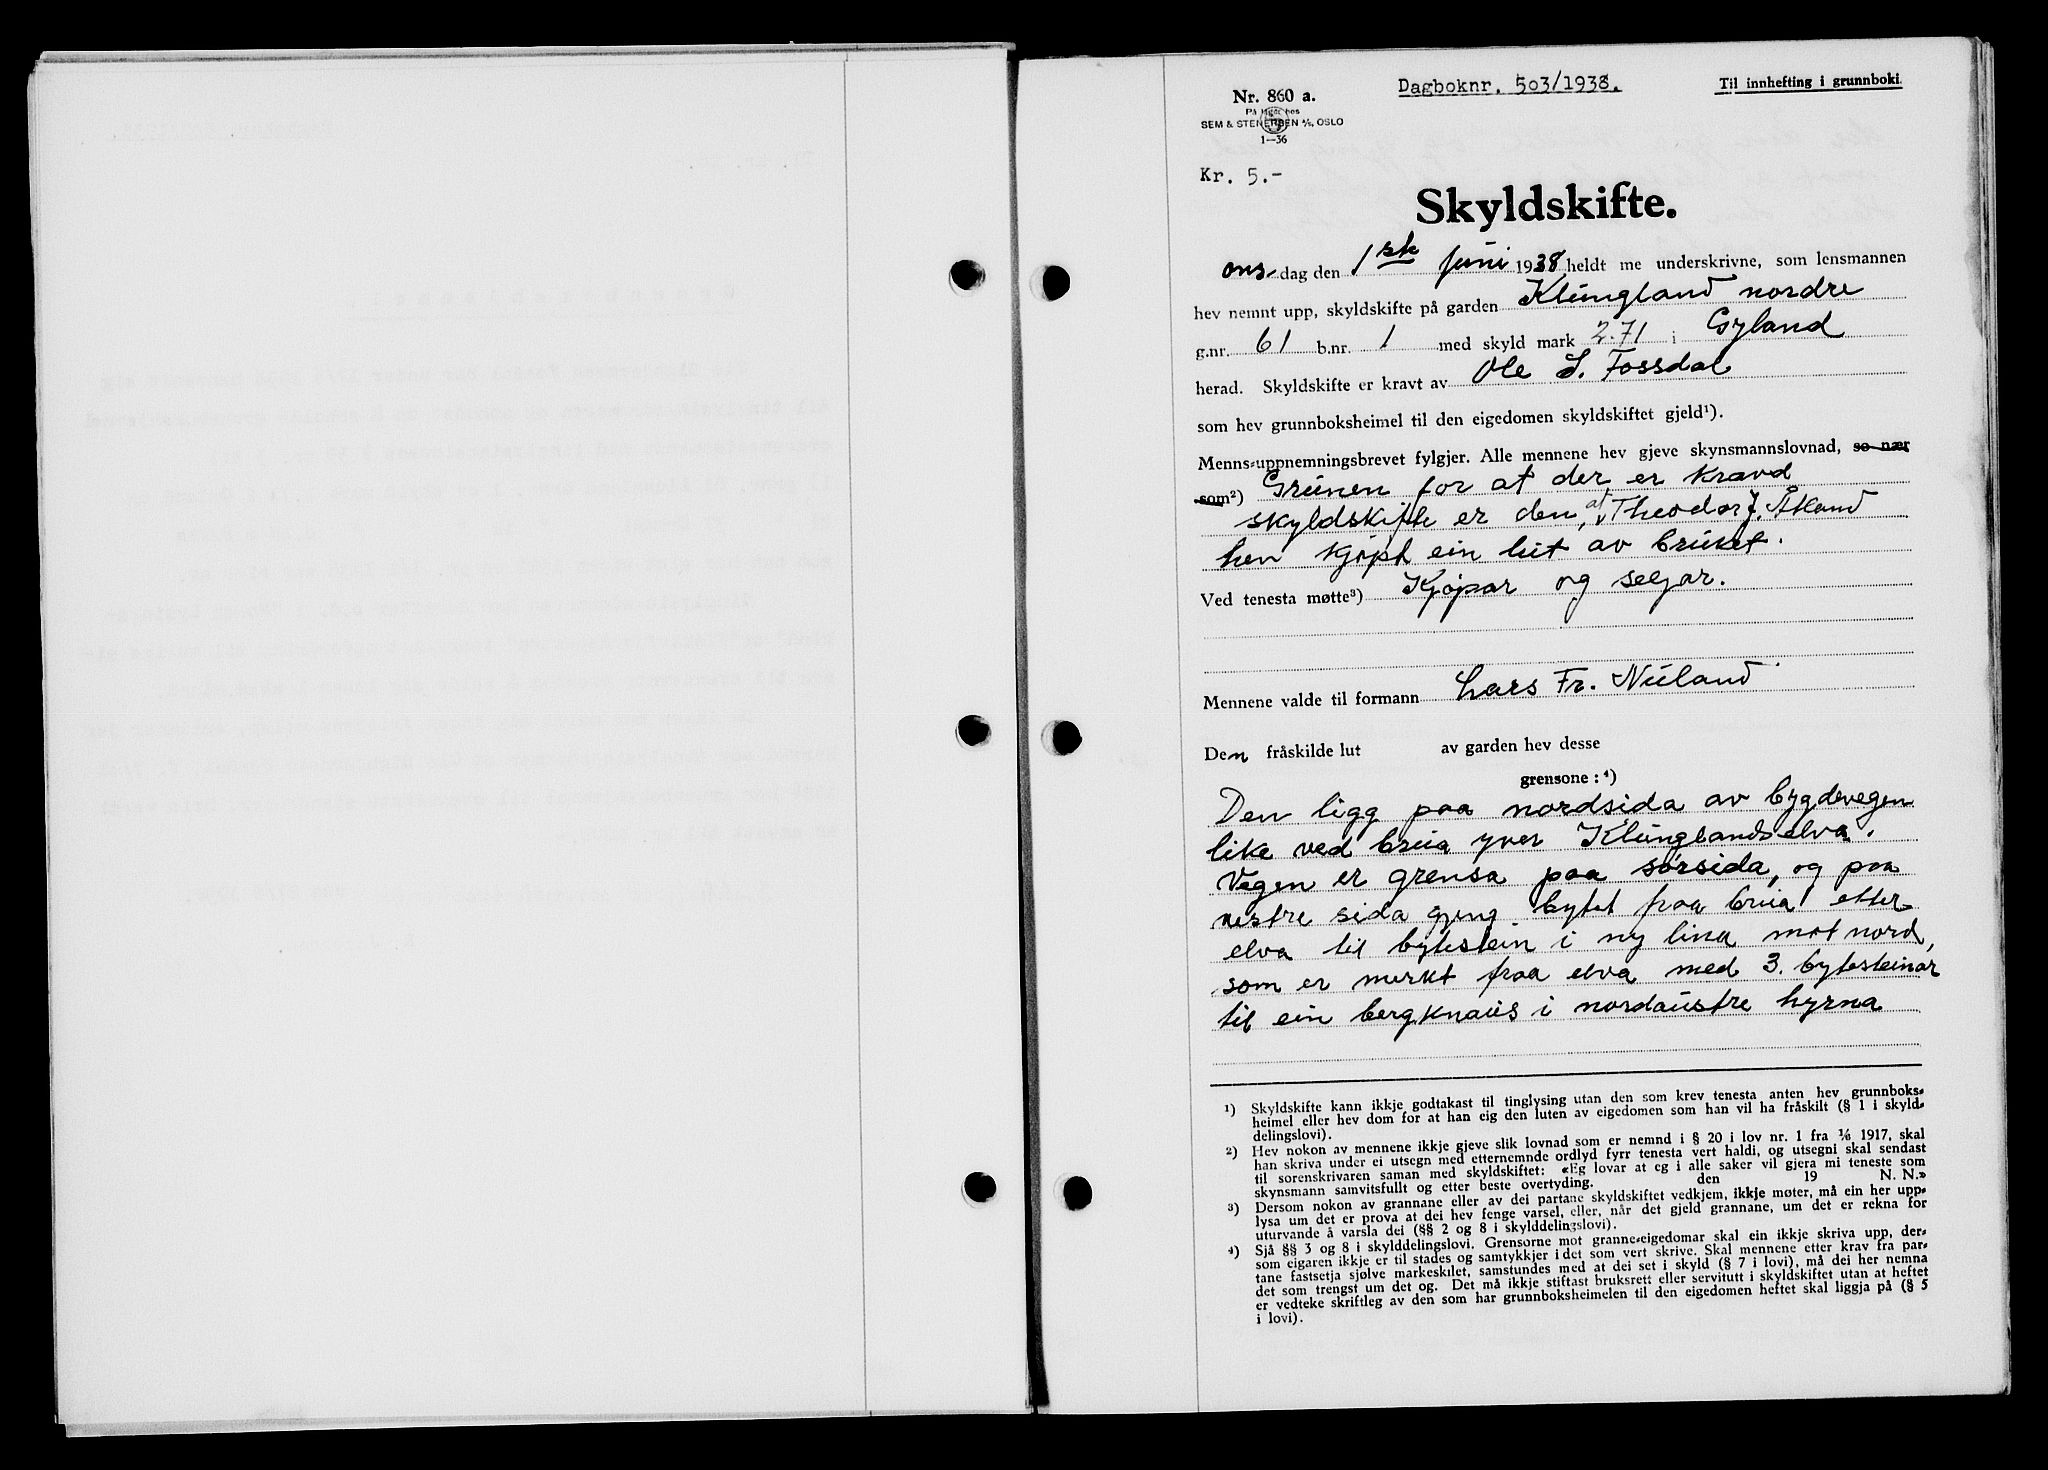 Dagboknr. 503/1938.
Til innhefting i grunnboki.
Nr. 860 a.
På lager hos
SEM & STENERSEN A/S, OSLO
1—36
Kr. 5.-
Skyldskifte.
ons-dag den 1ste juni 1938 heldt me underskrivne, som lensmannen
hev nemnt upp, skyldskifte på garden Klungland nordre
g.nr. 61 b.nr. 1 med skyld mark 2.71 i Gyland
herad. Skyldskifte er kravt av Ole S. Fossdal
som hev grunnboksheimel til den eigedomen skyldskiftet gjeld¹).
Menns-uppnemningsbrevet fylgjer. Alle mennene hev gjeve skynsmannslovnad, so nær
som²) Grunen for at der er kravd
skyldskifte er den, at Theodor J. Åtland
hev kjøpt ein lut av bruket.
Ved tenesta møtte³) Kjøpar og seljar.
Mennene valde til formann Lars Fr. Nuland
Den fråskilde lut av garden hev desse
grensone: ⁴)
Den ligg paa nordsida av bygdevegen
like ved brua yver Klunglandselva.
Vegen er grensa paa sørsida, og paa
vestre sida gjeng bytet fraa brua etter
elva til bytestein i ny lina mot nord,
som er merkt fraa elva med 3. bytesteinar
til ein bergknaus i nordaustre hyrna
¹) Skyldskifte kann ikkje godtakast til tinglysing utan den som krev tenesta anten hev grunnboks-
heimel eller hev dom for at han eig den luten av eigedomen som han vil ha fråskilt (§ 1 i skyld-
delingslovi).
²) Hev nokon av mennene ikkje gjeve slik lovnad som er nemnd i § 20 i lov nr. 1 fra ¹/₆ 1917, skal
han skriva under ei utsegn med etternemnde ordlyd fyrr tenesta vert haldi, og utsegni skal sendast
til sorenskrivaren saman med skyldskiftet: «Eg lovar at eg i alle saker vil gjera mi teneste som
skynsmann samvitsfullt og etter beste overtyding. den 19 N. N.»
³) Dersom nokon av grannane eller av dei partane skyldskiftet vedkjem, ikkje møter, må ein her upp-
lysa um det er prova at dei hev fenge varsel, eller, når det gjeld grannane, um det er rekna for
uturvande å varsla dei (§§ 2 og 8 i skylddelingslovi).
⁴) Sjå §§ 3 og 8 i skylddelingslovi. Grensorne mot granne-eigedomar skal ein ikkje skriva upp, der-
som eigaren ikkje er til stades og samtykkjer i det som vert skrive. Skal mennene etter krav fra par-
tane fastsetja sjølve markeskilet, samstundes med at dei set i skyld (§ 7 i lovi), må dei her nemna
det som trengst um det og. Det må ikkje stiftast bruksrett eller servitutt i skyldskiftet utan at heftet
er vedteke skriftleg av den som har grunnboksheimelen til den eigedomen heftet skal liggja på (§ 5
i lovi).